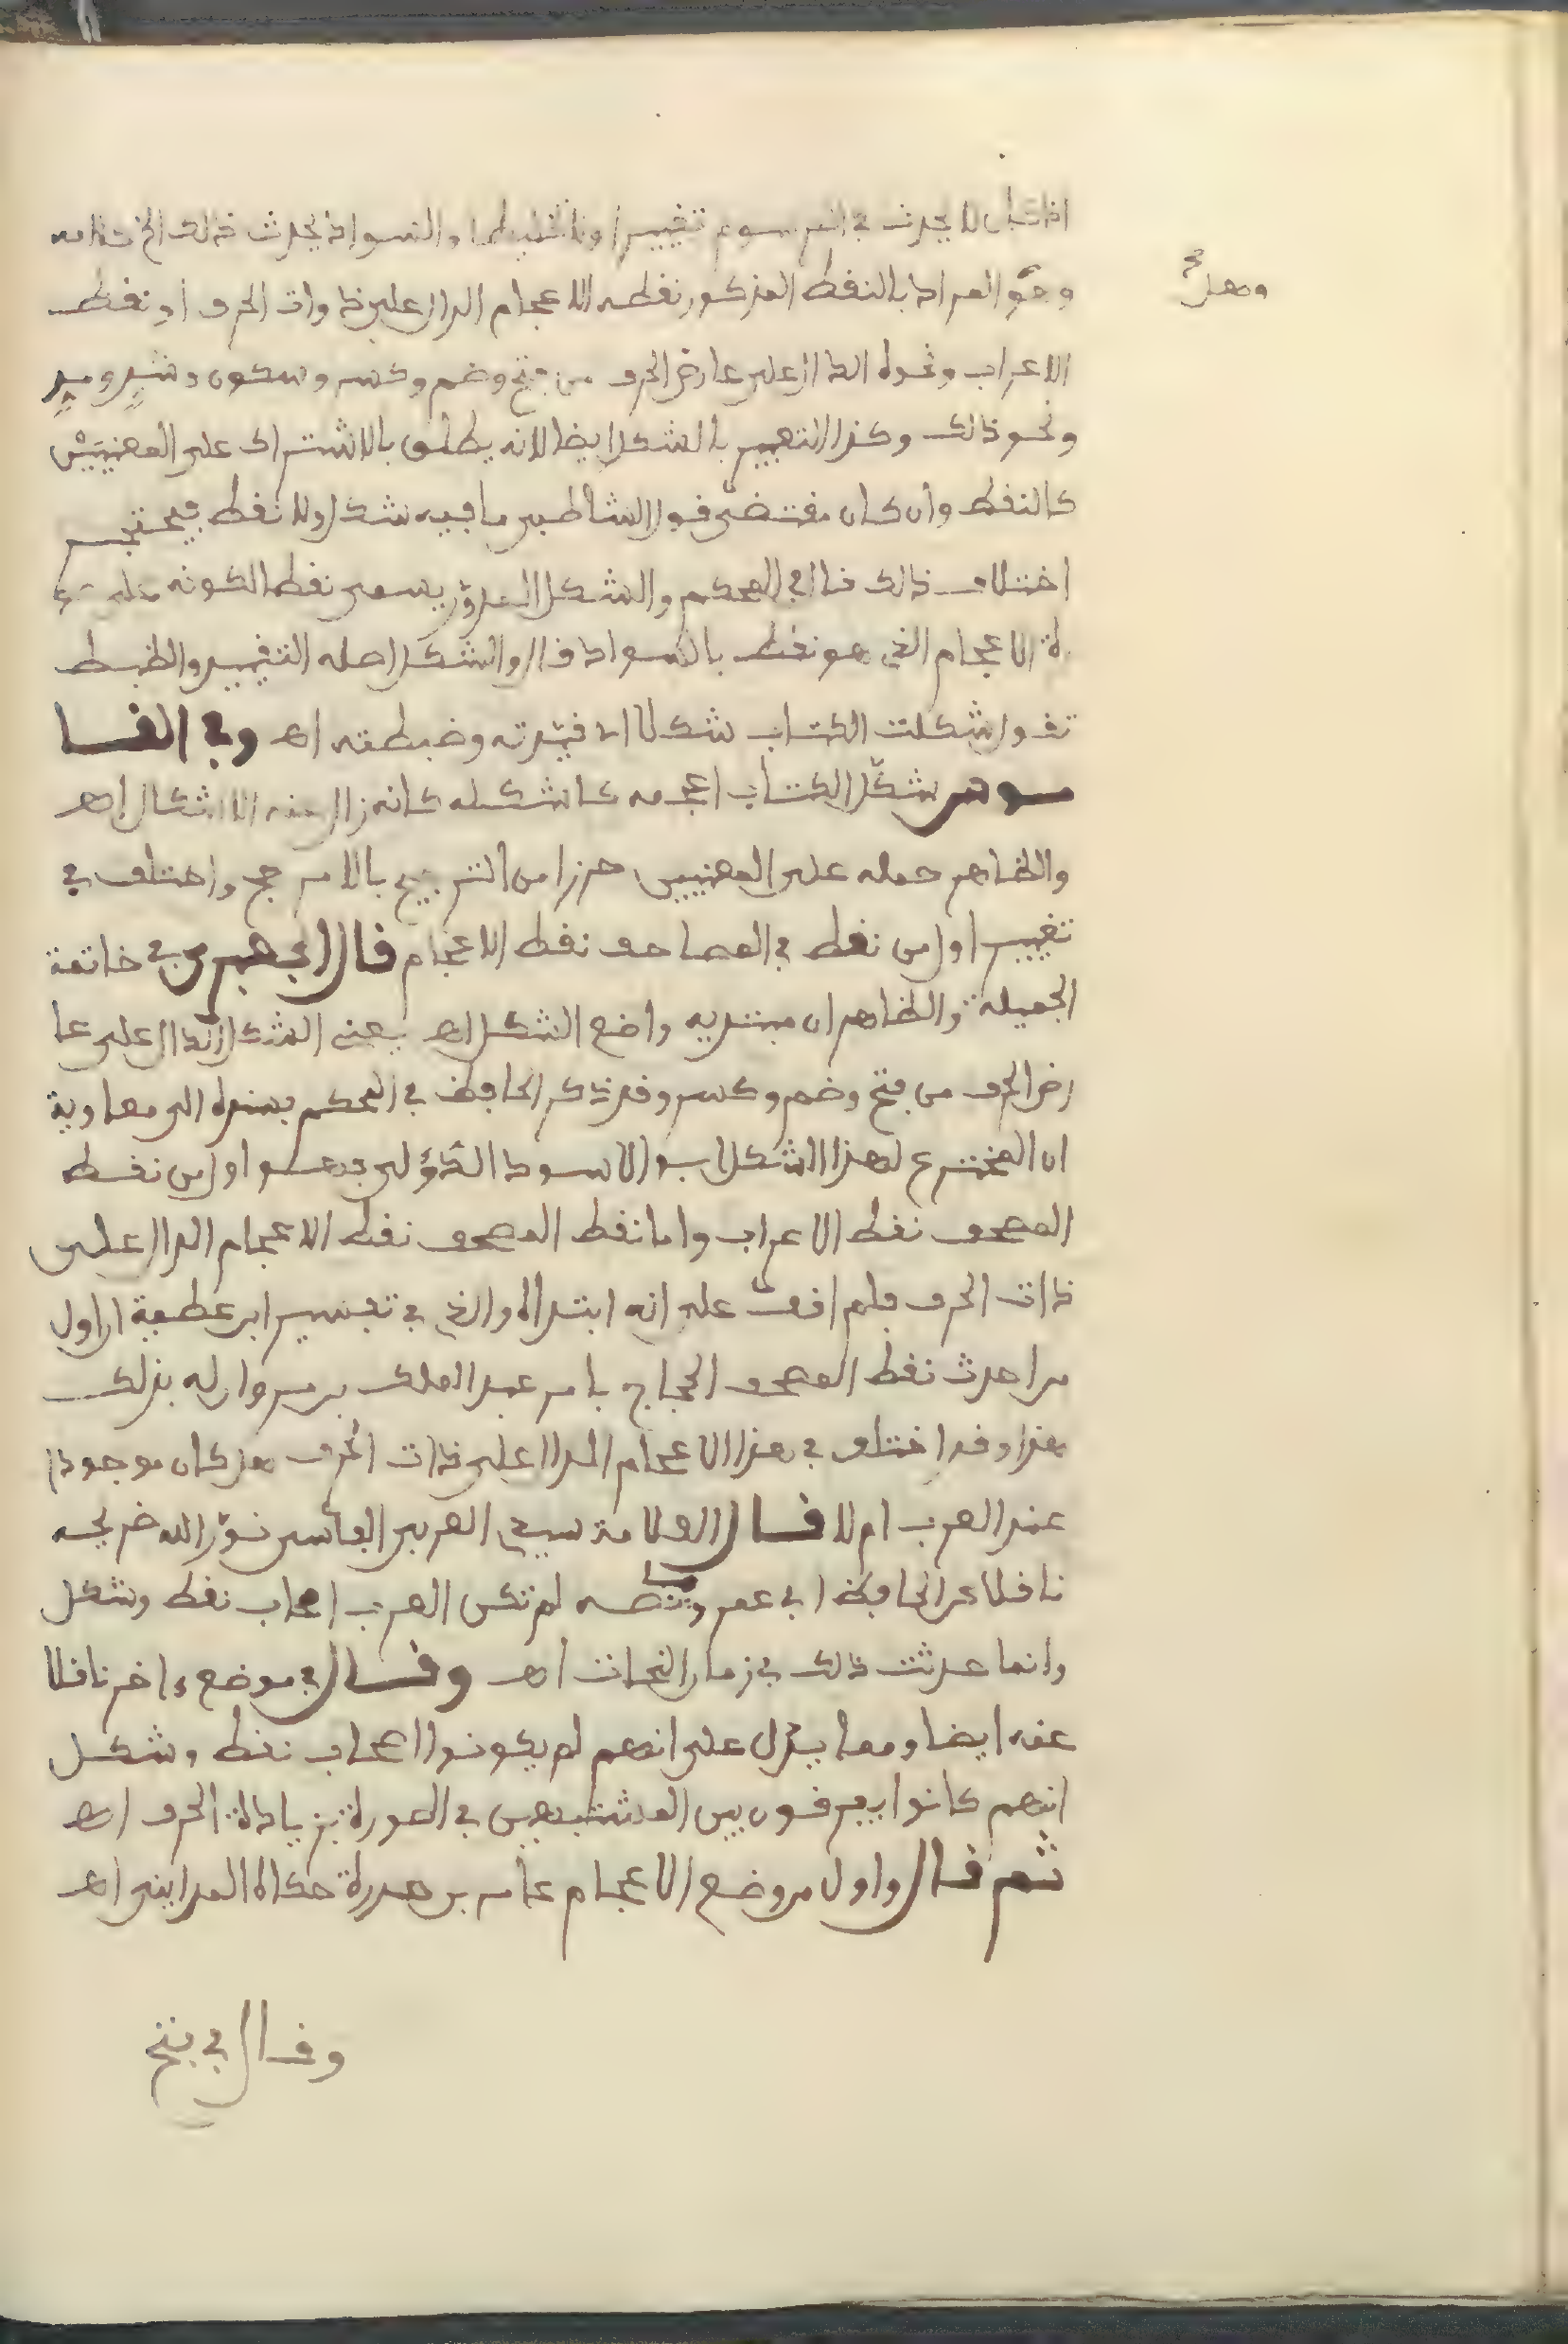 اذا كان لا يحدث في المرسوم تغييرا وتخليطا والسواد يحدث ذلك الخ كلامه
وهل المراد بالنقط المذكور نقطه الاعجام الدال على ذوات الحرف او نقط
وهل صح
الاعراب ونحوه الدال على عارض الحرف من فتح وضم وكسر وسكون وشد ومد
ونحو ذالك وكذا التعبير بالشكل ايضا لانه يطلق بالاشتراك على المعنيين
كالنقط وان كان مقتضى قول الشاطبي ما فيه شكل ولا نقط فيحتجر
اختلاف ذالك قال في المحكم والشكل المدور يسمى نقطا لكونه على
رة الاعجام الذي هو نقط بالسواد قال والشكل اصله التقييد والضبط
تقول شكلت الكتاب شكلا اي قيدته وضبطته اهـ وفي القا
موس شكل الكتاب اعجمه كاشكله كانه زال عنه الاشكال اهـ
والظاهر حمله على المعنيين حرزا من الترجيح بلا مرجح واختلف في
تعيين اول من نقط في المصاحف نقط الاعجام قال الجعبري في خاتمة
الجميلة والظاهر ان مبتديه واضع الشكل اهـ يعني الشكل الدال على عا
رض الحرف من فتح وضم وكسر وقد ذكر الحافظ في المحكم بسنده الى معاوية
ان المخترع لهذا الشكل ابو الاسود الدؤلي فهو اول من نقط
المصحف نقط الاعراب واما نقط المصحف نقط الاعجام الدال على
ذات الحرف فلم اقف على انه ابتدأه والذي في تفسير ابن عطية ان اول
من احدث نقط المصحف الحجاج بامر عبد الملك بن مروان له بذلك
هذا وقد اختلف في هذا الاعجام الدال على ذات الحرف هل كان موجودا
عند العرب ام لا قال العلامة سيدي العربي الفاسي نور الله ضريحه
ناقلا عن الحافظ ابي عمرو ما نصه لم تكن العرب اصحاب نقط وشكل
وانما حدثت ذالك في زمان النحات اهـ وقال في موضع ءاخر ناقلا
عنه ايضا ومما يدل على انهم لم يكونوا اصحاب نقط وشكل
انهم كانوا يفرقون بين المشتبهين في الصورة بزيادة الحرف اهـ
ثم قال واول من وضع الاعجام عامر بن جدرة حكاه المدايني اهـ
وقال في فتح